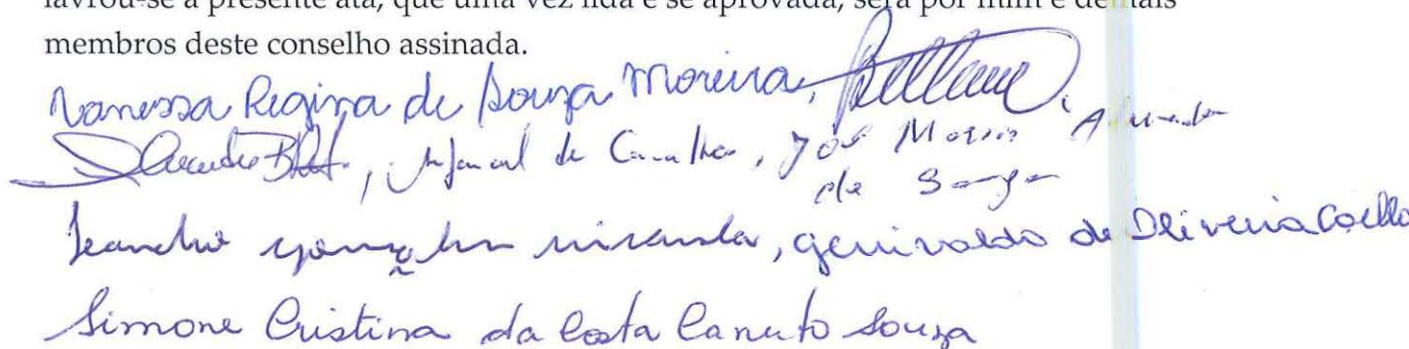 lavrou-se a presente ata, que uma vez lida e se aprovada, será por mim e demais
membros deste conselho assinada.
Vanessa Regina de Souza Moreira,
de Carvalho, José
de Souza
Leandro, genivaldo de Oliveira Coelho
Simone Cristina da Costa Canuto Souza